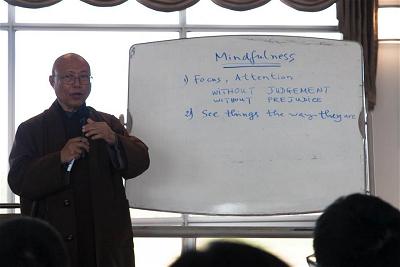 Mindfulness
1) Focus, Attention
WITHOUT JUDGEMENT
WITHOUT PREJUDICE
2) See things the way they are